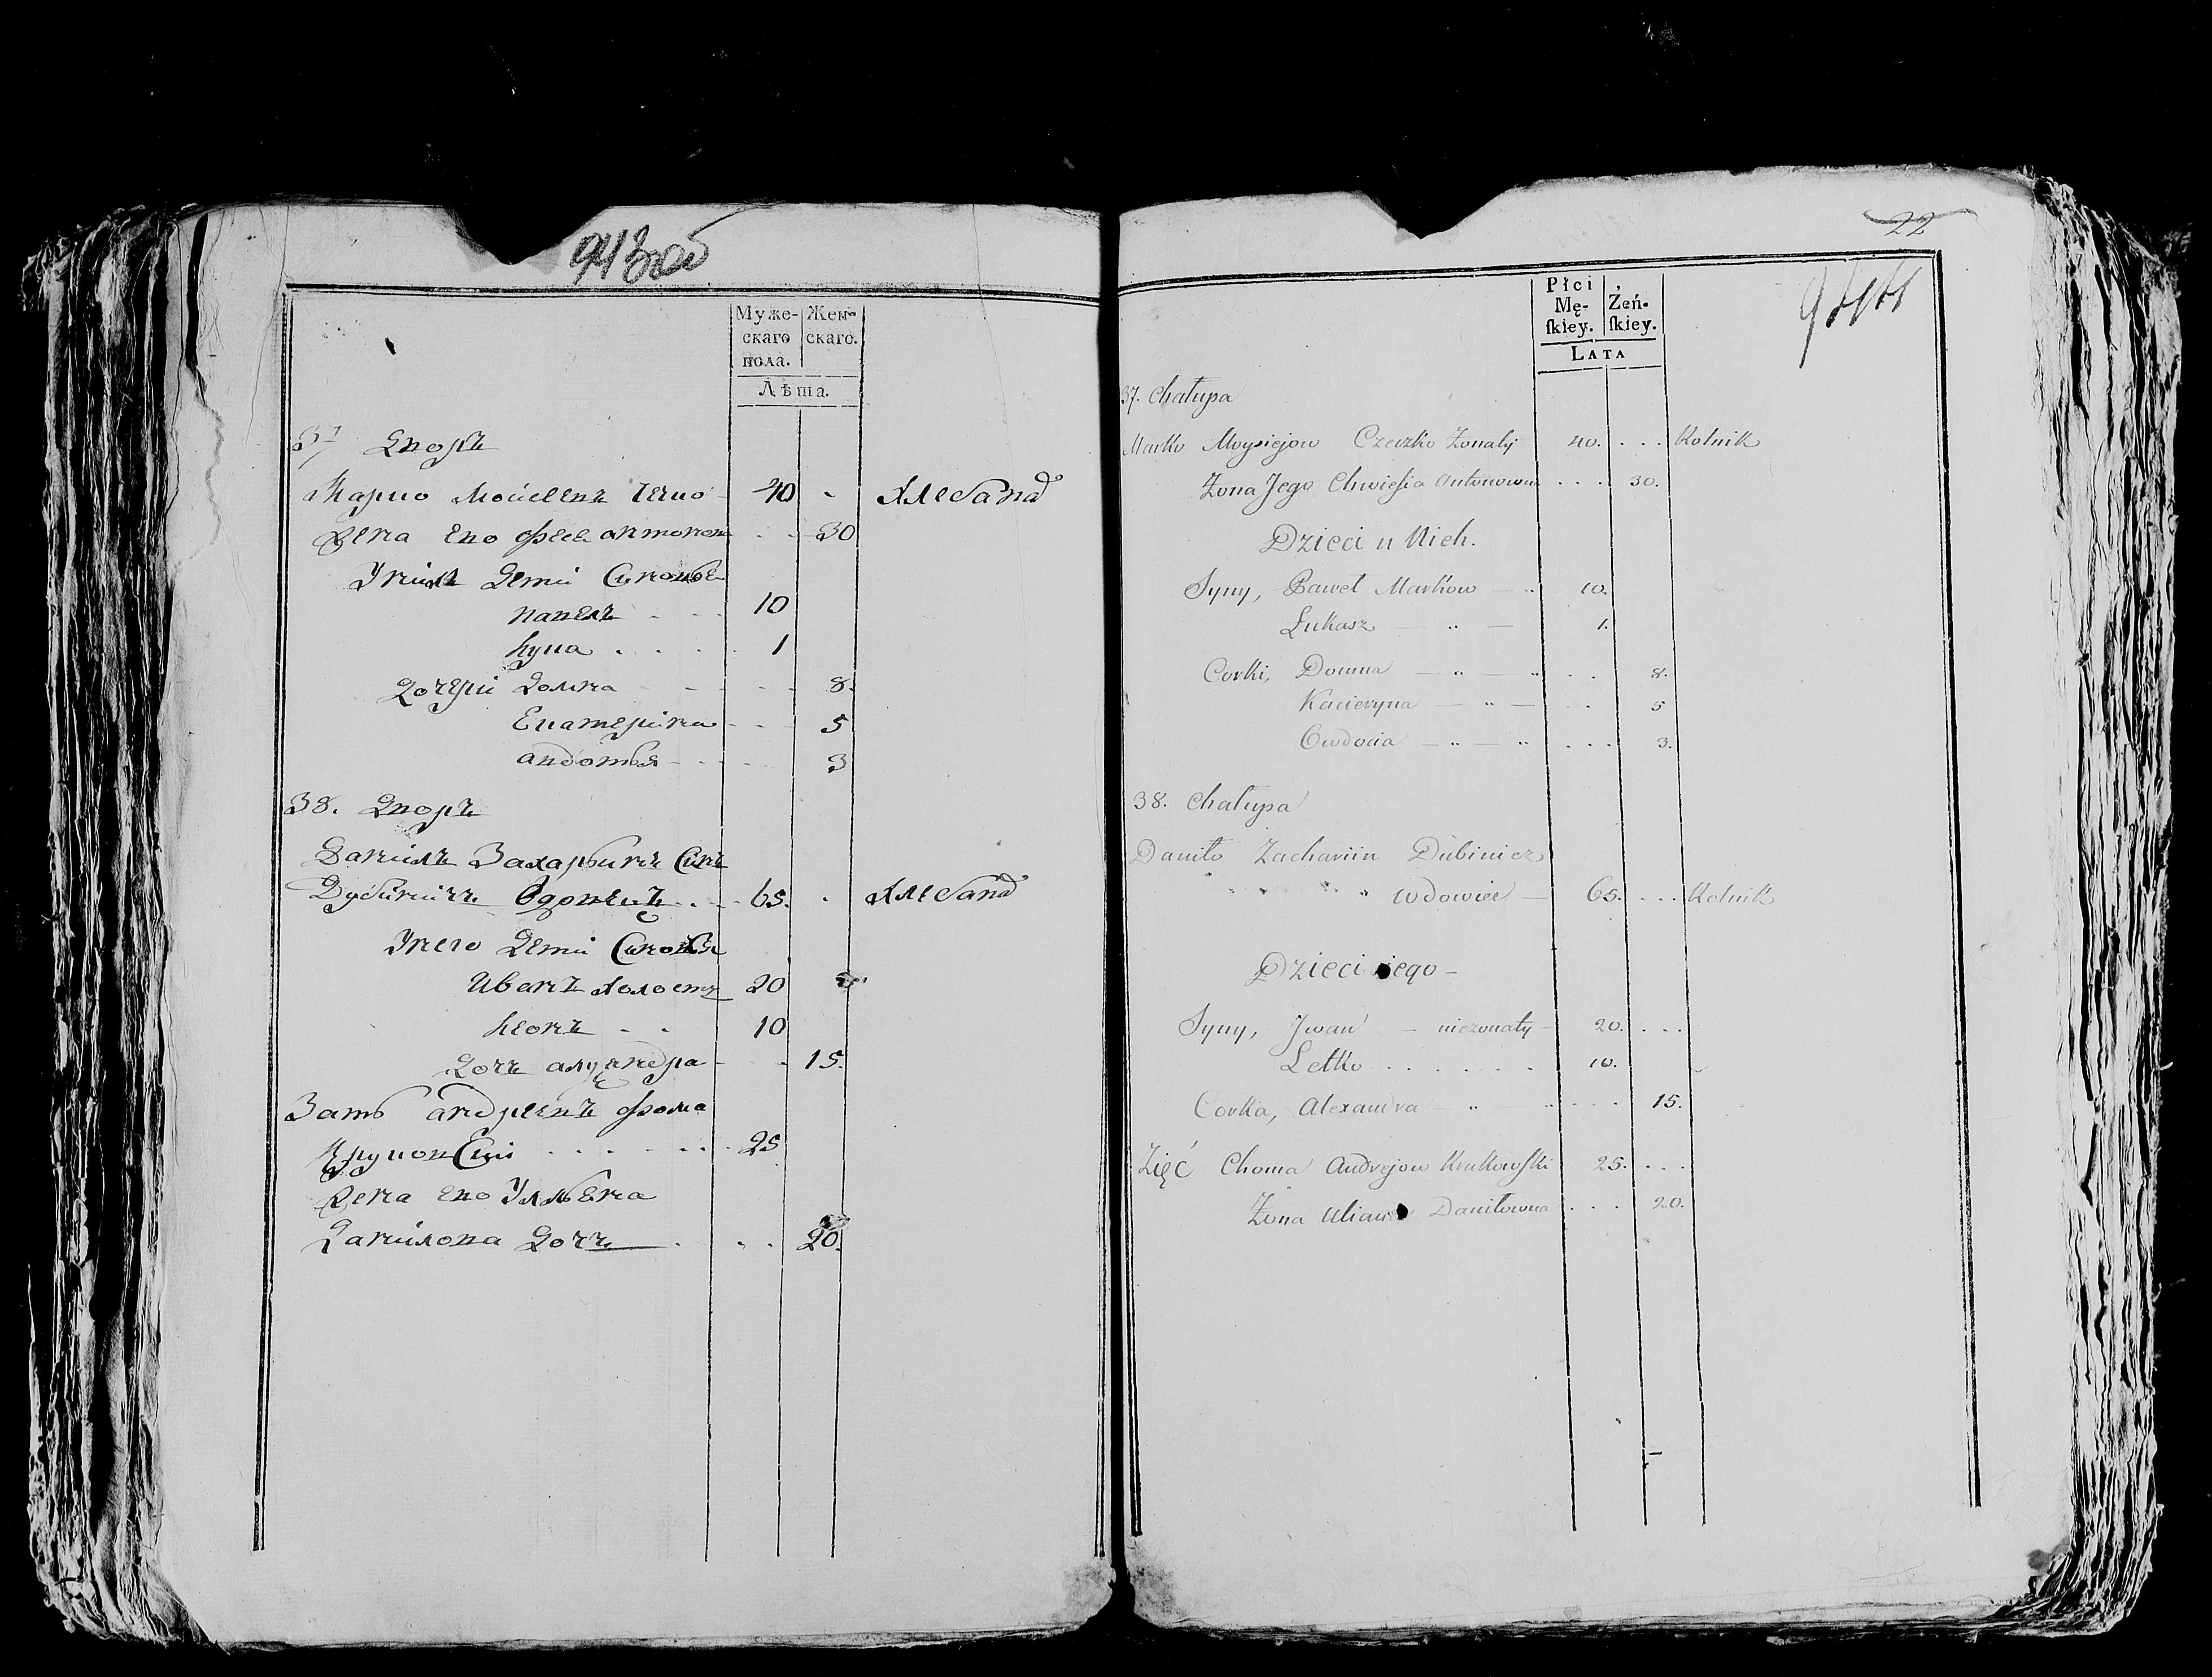 943 об
Мужескаго пола.
Женскаго.
Лѣта.
37 Дворъ
Марко Мойсеевъ Чечко 40 Хлебапа
Жена Его Фесе антонова 30
Унихъ Дети Сыновья
павелъ 10
лука 1
Дочери Домна 8.
Екатерина 5
авдотья 3
38. Дворъ
Данилъ Захарьинъ Сынъ
Дубиничъ Вдовецъ 65. Хлебапа
Унего Дети Сыновья
Иванъ холостъ 20
леонъ 10
Дочь 15.
Зять андреевъ фома
Круковский 25
Жена Его Ульяна
Данилова Дочь 20.
22
944
Płci Męſkiey.
Żeńſkiey.
Lata
37. Chałupa
Marko Moysiejow Czeczko Żonaty 40. Rolnik
Żona Jego Chwiesia Antonowna 30.
Dzieci u Nich.
Syny, Paweł Markow 10.
Łukasz 1.
Corki, Domna 8.
Kacieryna 5
Owdocia 3.
38. Chałupa
Daniło Zachariin Dubinicz
wdowiec 65. Rolnik
Dzieci iego
Syny, Jwan nieżonaty 20.
Lełko 10.
Corka, Alexandra 15.
Zięć Choma Andrejow Krukowski 25.
Żona Uliana Daniłowna 20.